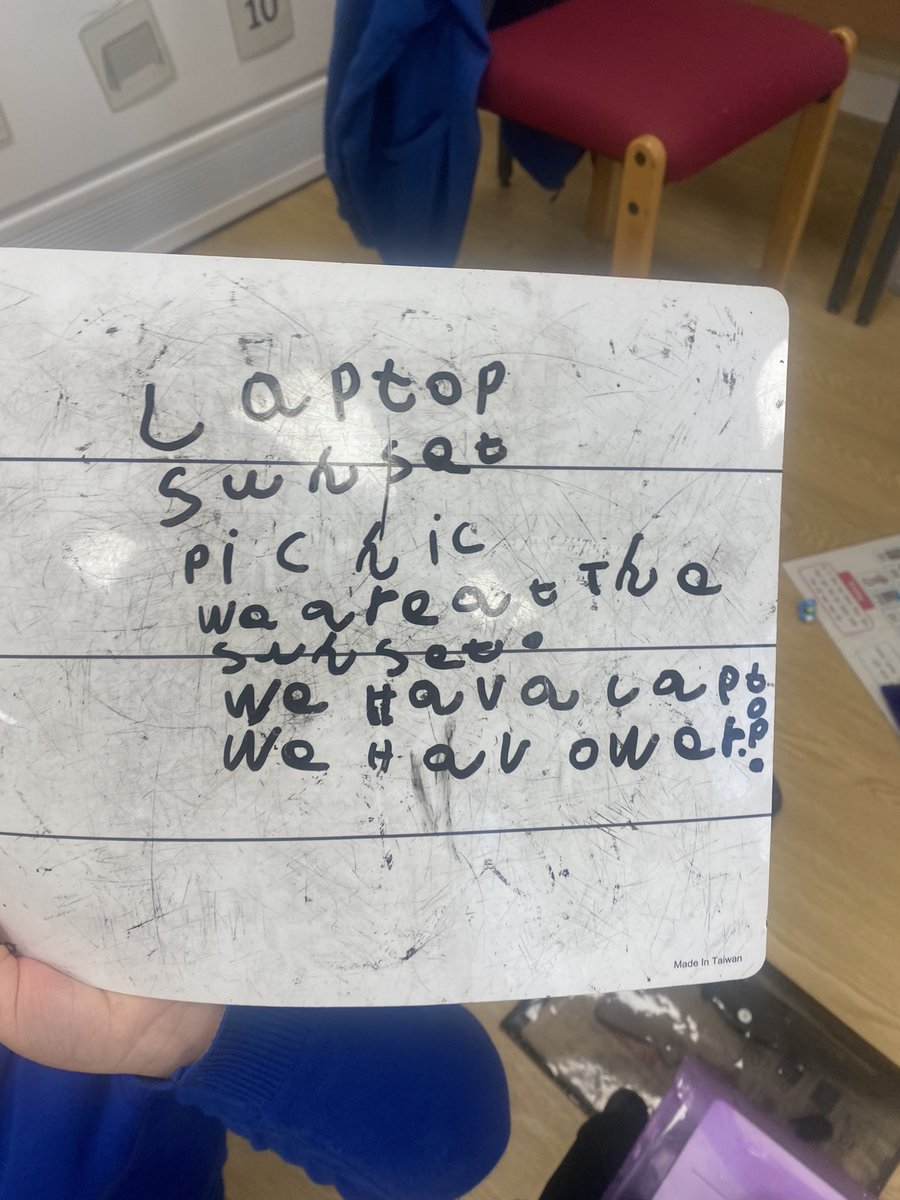 10
Laptop
sunset
picnic
we are at The
sunset.
We Hav a Laptop.
We Hav ower.
Made In Taiwan